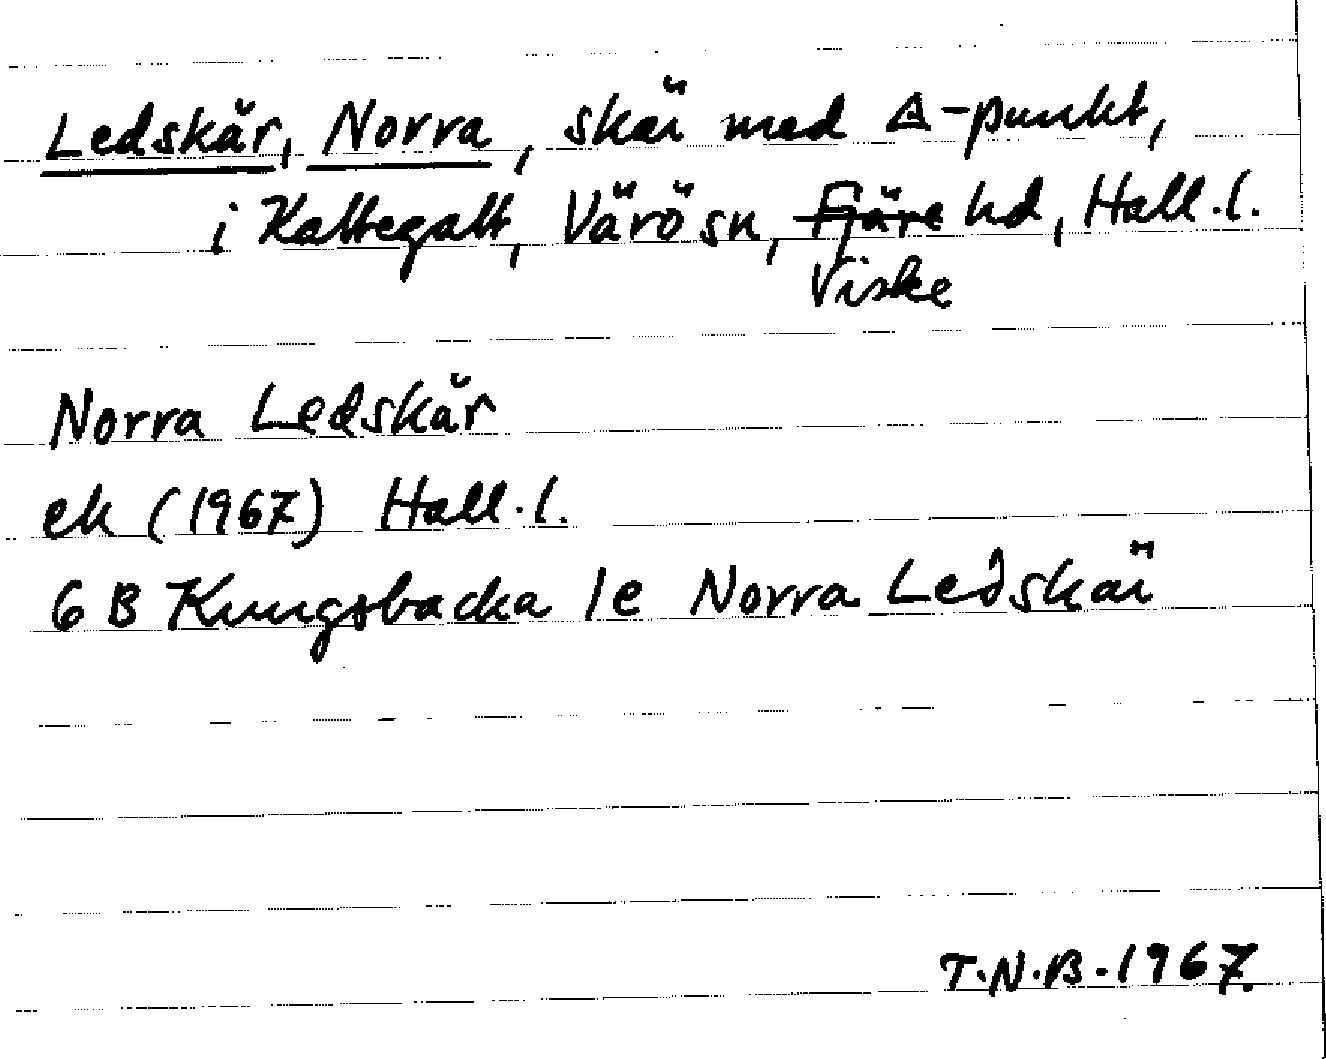 Ledskär, Norra, skär med △-punkt,
i Kattegatt, Värö sn, Fjäre hd, Hall.l.
Viske
Norra Ledskär
ek (1967) Hall.l.
6 B Kungsbacka 1e Norra Ledskär
T.N.B. 1967.